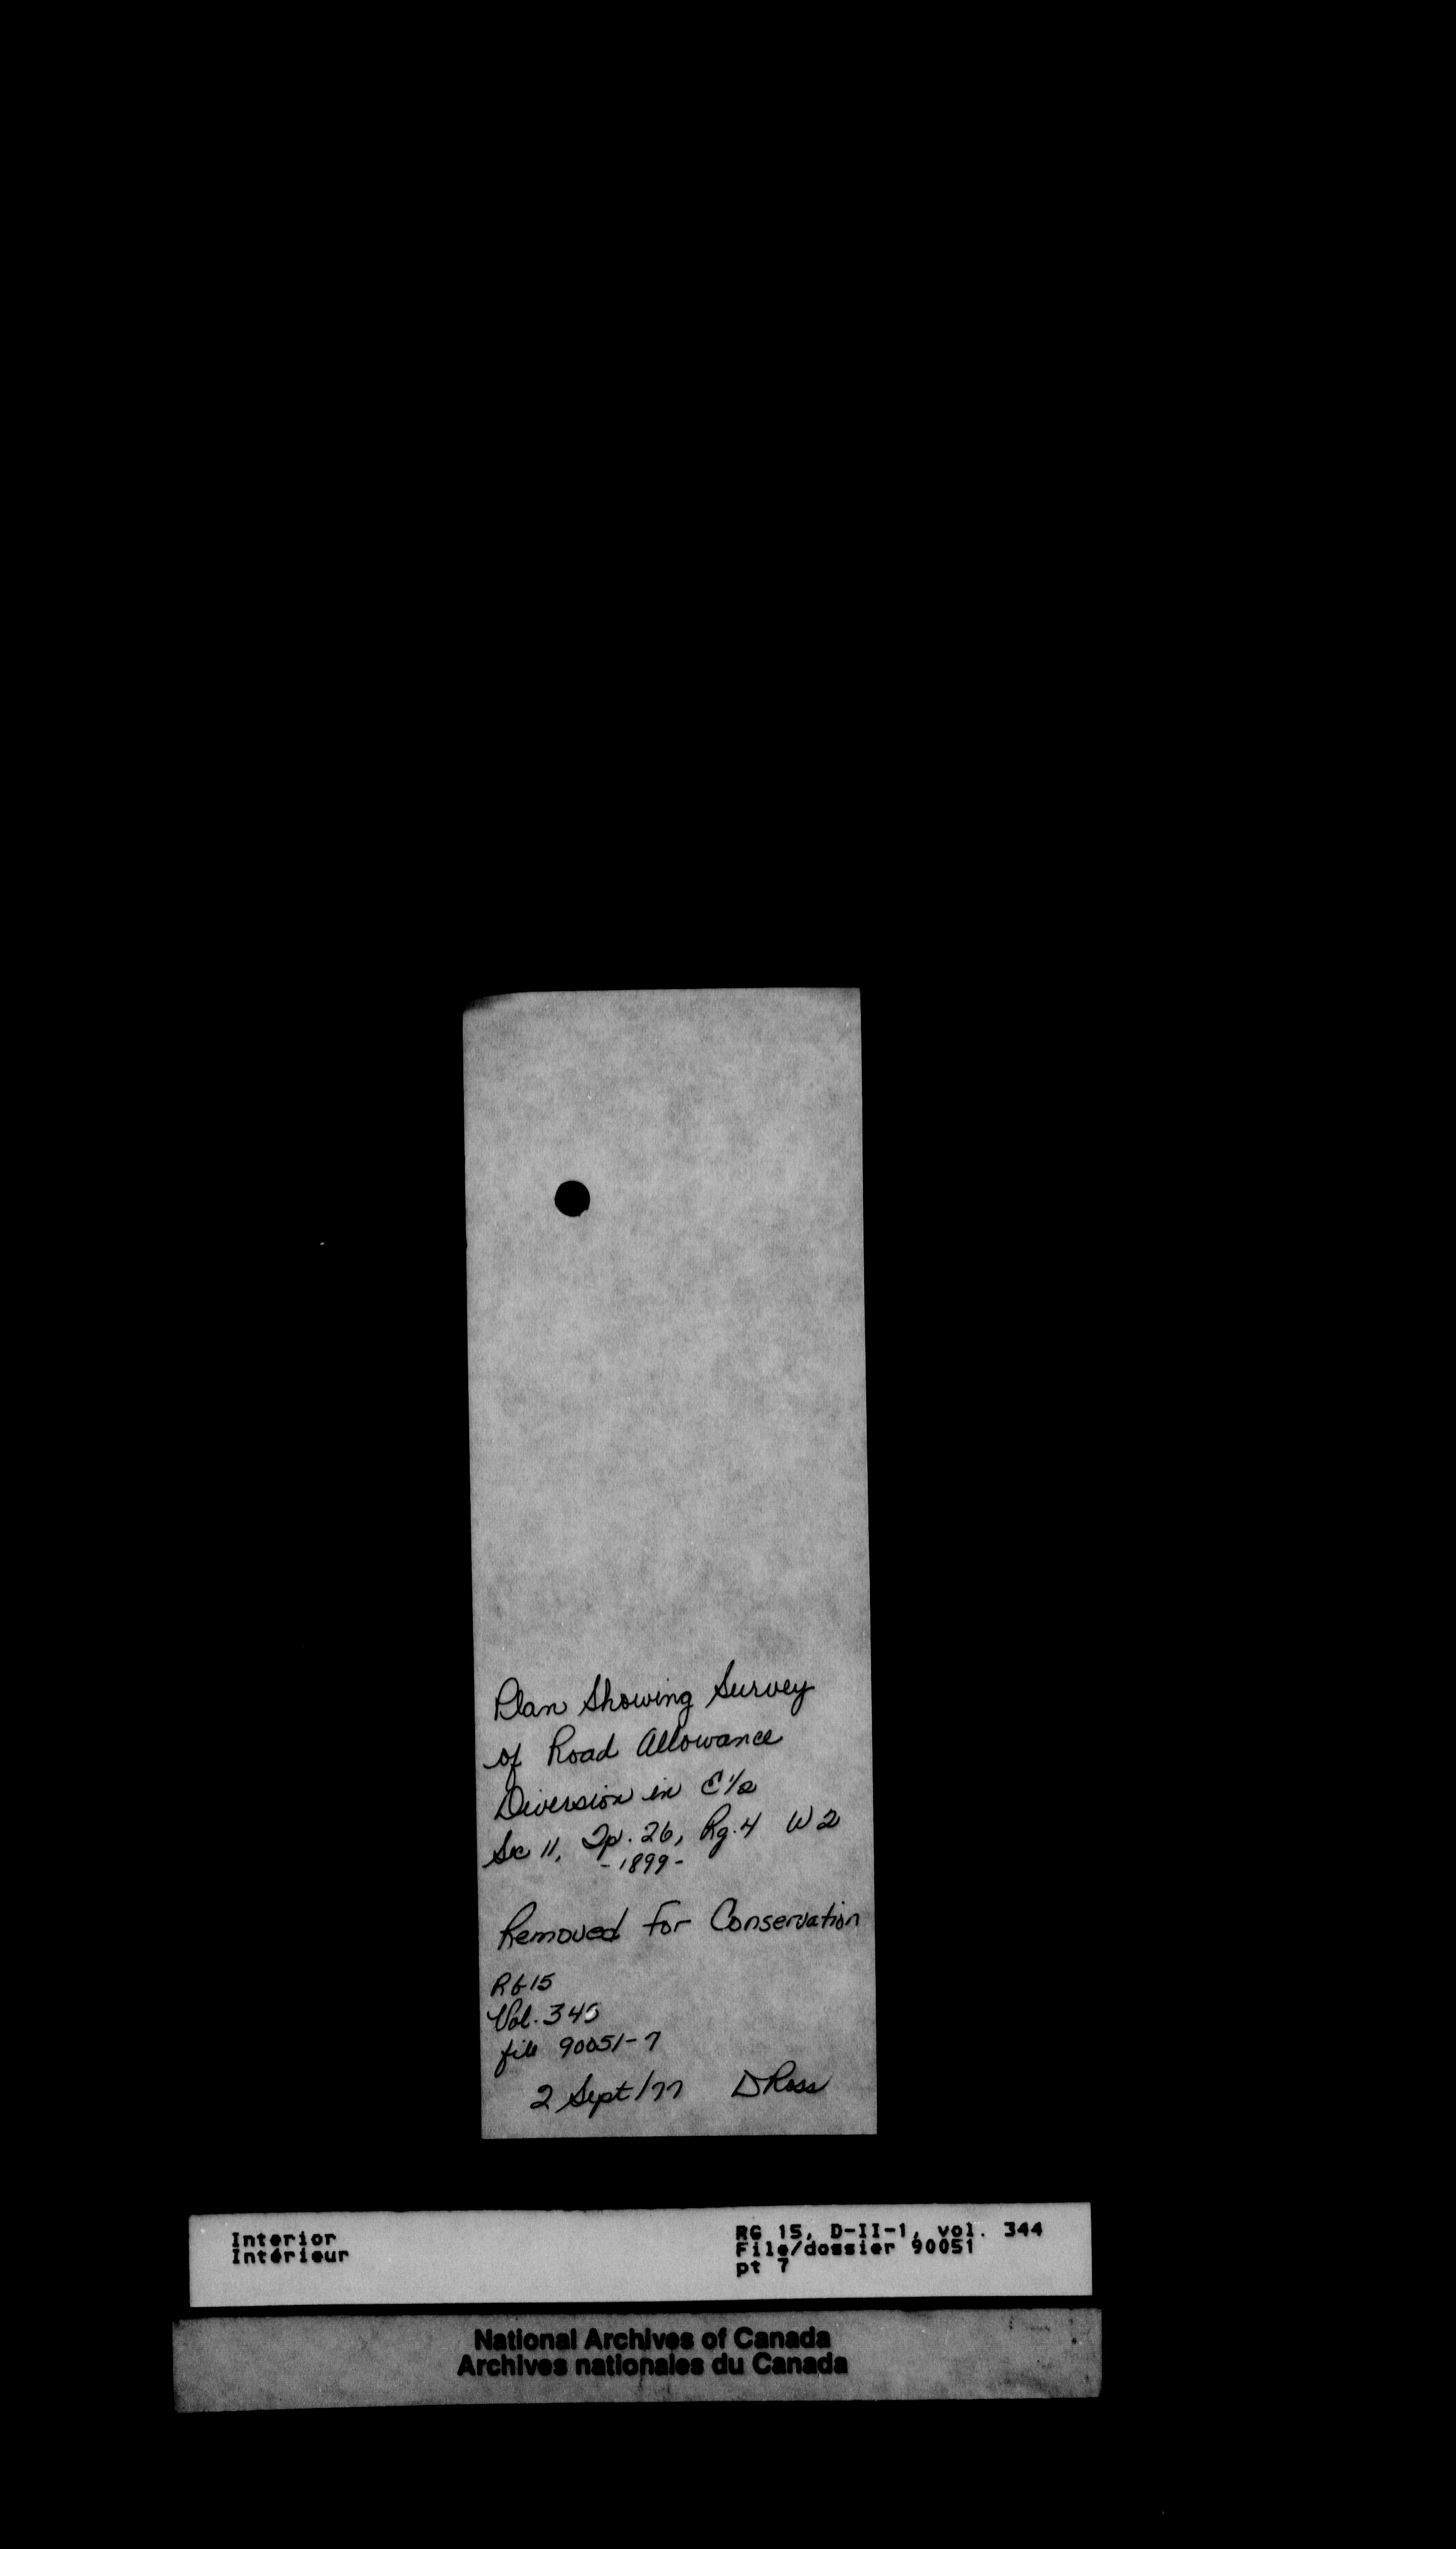 Plan Showing Survey
of Road Allowance
Diversion in E 1/2
Sec 11, Tp. 26, Rg. 4 W 2
- 1899 -
Removed for Conservation
RG 15
Vol. 345
file 90051-7
2 Sept/77 D Ross
Interior
Intérieur
RG 15, D-II-1, vol. 344
File/dossier 90051
pt 7
National Archives of Canada
Archives nationales du Canada